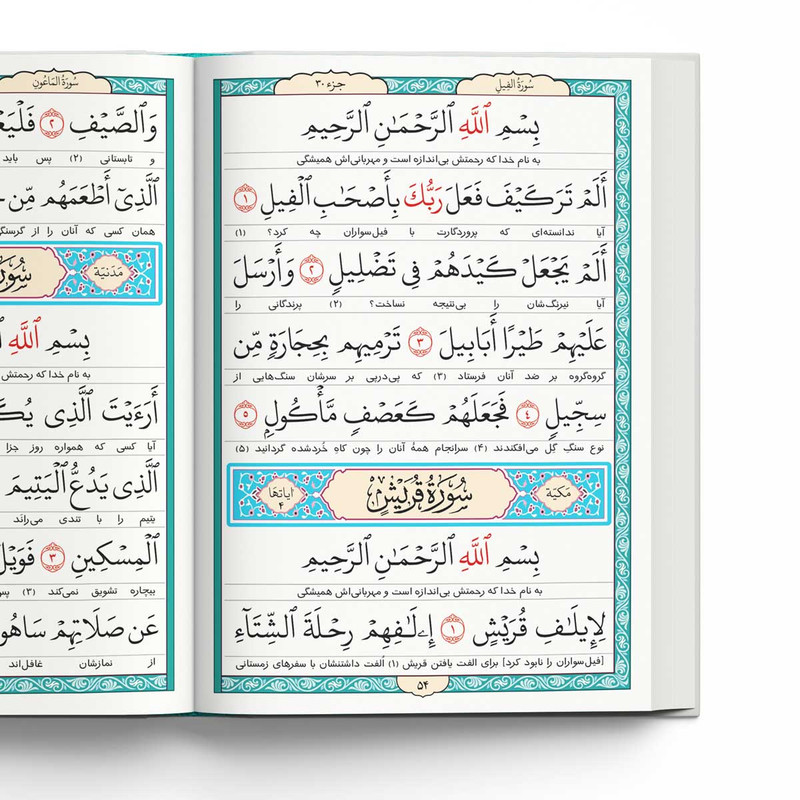 سُورَةُ الفِیلِ
جزء ۳۰
بِسْمِ ٱللَّهِ ٱلرَّحْمَـٰنِ ٱلرَّحِيمِ
به نام خدا که رحمتش بی‌اندازه است و مهربانی‌اش همیشگی
أَلَمْ تَرَ كَيْفَ فَعَلَ رَبُّكَ بِأَصْحَـٰبِ ٱلْفِيلِ ١
آیا ندانسته‌ای که پروردگارت با فیل‌سواران چه کرد؟ (۱)
أَلَمْ يَجْعَلْ كَيْدَهُمْ فِي تَضْلِيلٍ ٢ وَأَرْسَلَ
آیا نیرنگ‌شان را بی‌نتیجه نساخت؟ (۲) پرندگانی را
عَلَيْهِمْ طَيْرًا أَبَابِيلَ ٣ تَرْمِيهِم بِحِجَارَةٍ مِّن
گروه‌گروه بر ضد آنان فرستاد (۳) که پی‌درپی بر سرشان سنگ‌هایی از
سِجِّيلٍ ٤ فَجَعَلَهُمْ كَعَصْفٍ مَّأْكُولٍ ٥
نوع سنگِ گِل می‌افکندند (۴) سرانجام همهٔ آنان را چون کاهِ خُردشده گردانید (۵)
مَکیّة
سُورَةُ قُرَيْشٍ
ایاتها ۴
بِسْمِ ٱللَّهِ ٱلرَّحْمَـٰنِ ٱلرَّحِيمِ
به نام خدا که رحمتش بی‌اندازه است و مهربانی‌اش همیشگی
لِإِيلَـٰفِ قُرَيْشٍ ١ إِۦلَـٰفِهِمْ رِحْلَةَ ٱلشِّتَآءِ
[فیل‌سواران را نابود کرد] برای الفت یافتن قریش (۱) اُلفت داشتنشان با سفرهای زمستانی
۵۴
سُورَةُ المَاعُونِ
وَٱلصَّيْفِ ٢
و تابستانی (۲) پس باید
ٱلَّذِيٓ أَطْعَمَهُم مِّن
همان کسی که آنان را از
مَدَنیّة
بِسْمِ ٱللَّهِ
به نام خدا که رحمتش
أَرَءَيْتَ ٱلَّذِي
آیا کسی که همواره روز جزا
ٱلَّذِي يَدُعُّ ٱلْيَتِيمَ
یتیم را با تندی می‌راند
ٱلْمِسْكِينِ ٣
بیچاره تشویق نمی‌کند (۳)
عَن صَلَاتِهِمْ
از نمازشان غافل‌اند